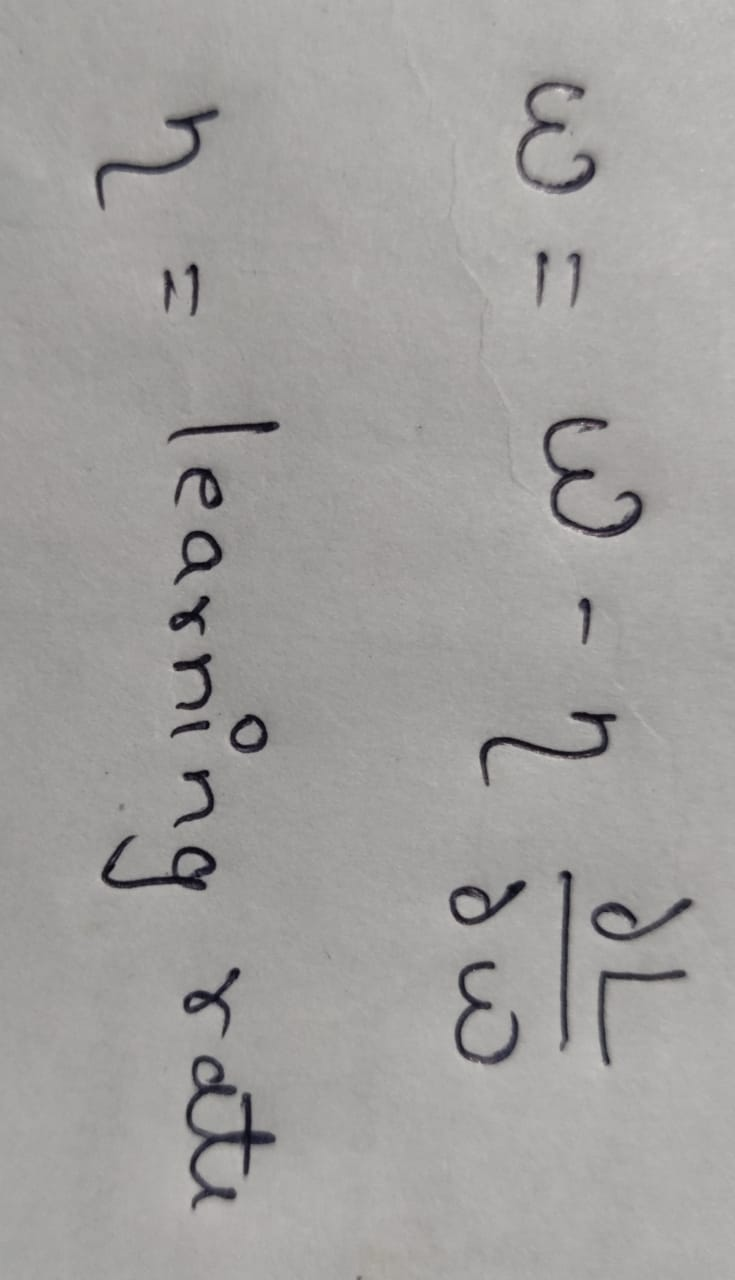 ω = ω - η ∂L/∂ω
η = learning rate